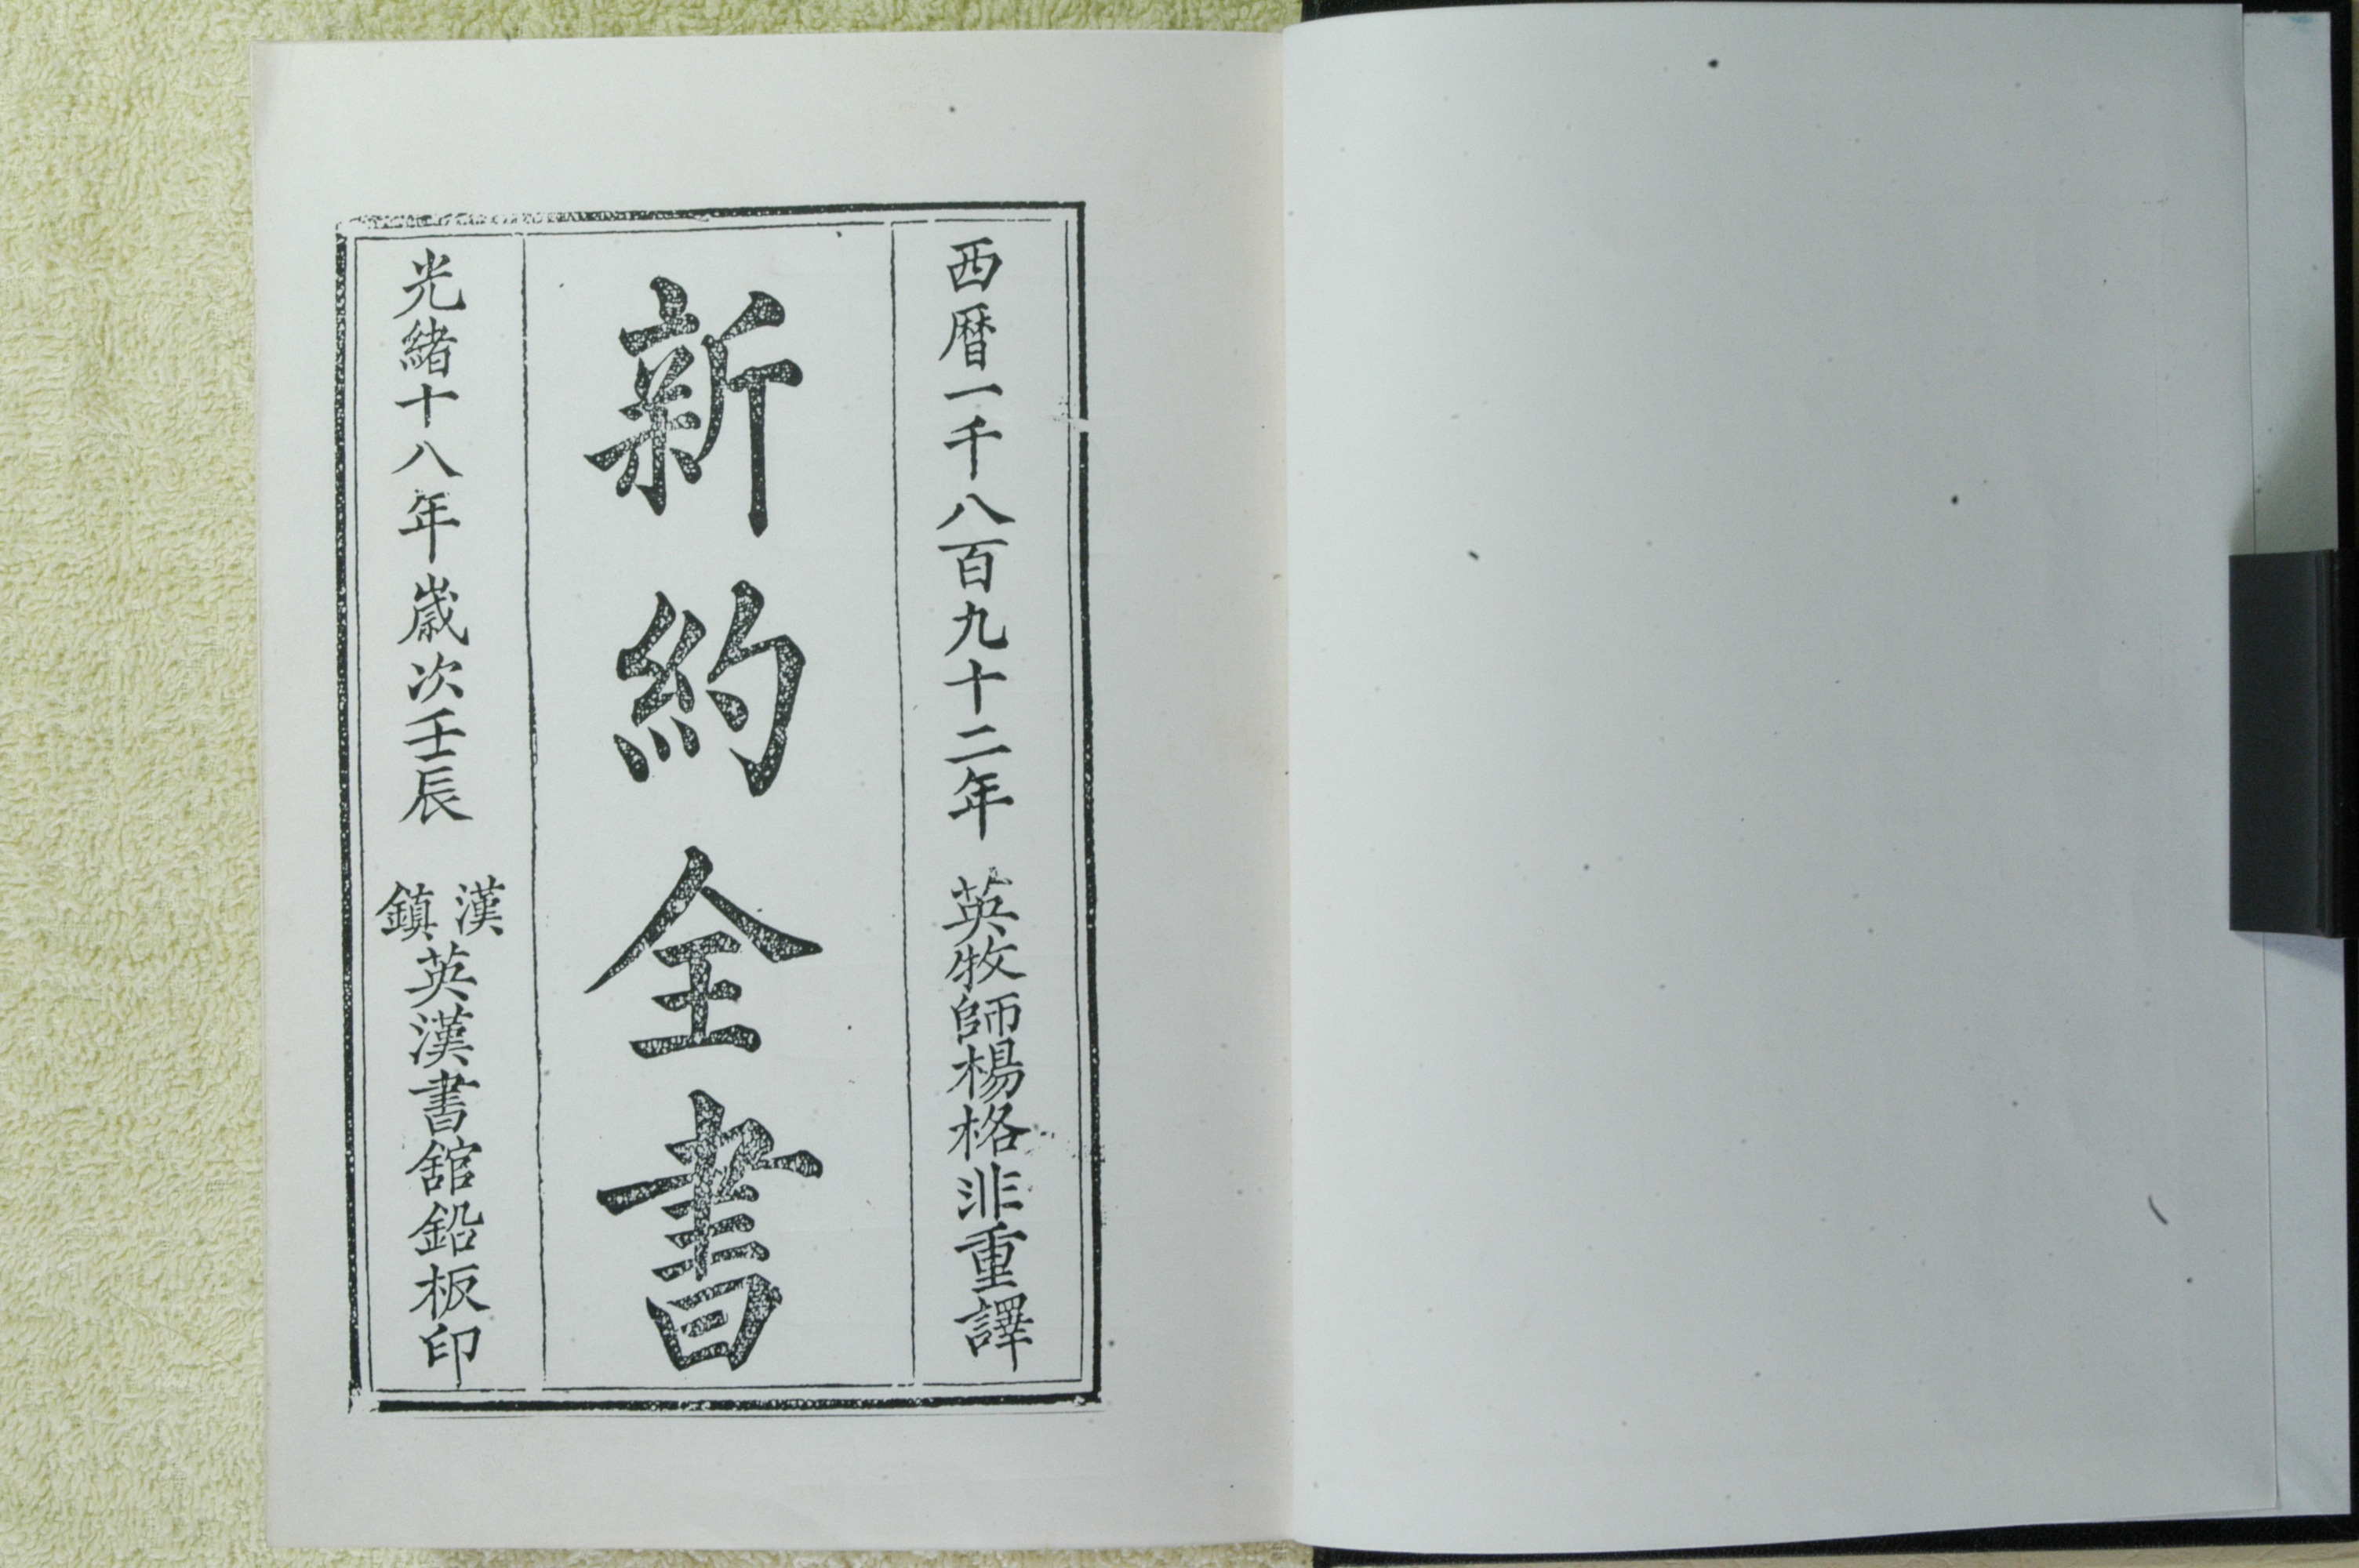 西暦一千八百九十二年 英牧師楊格非重譯
新約全書
光緒十八年歲次壬辰 漢鎮英漢書館鉛板印